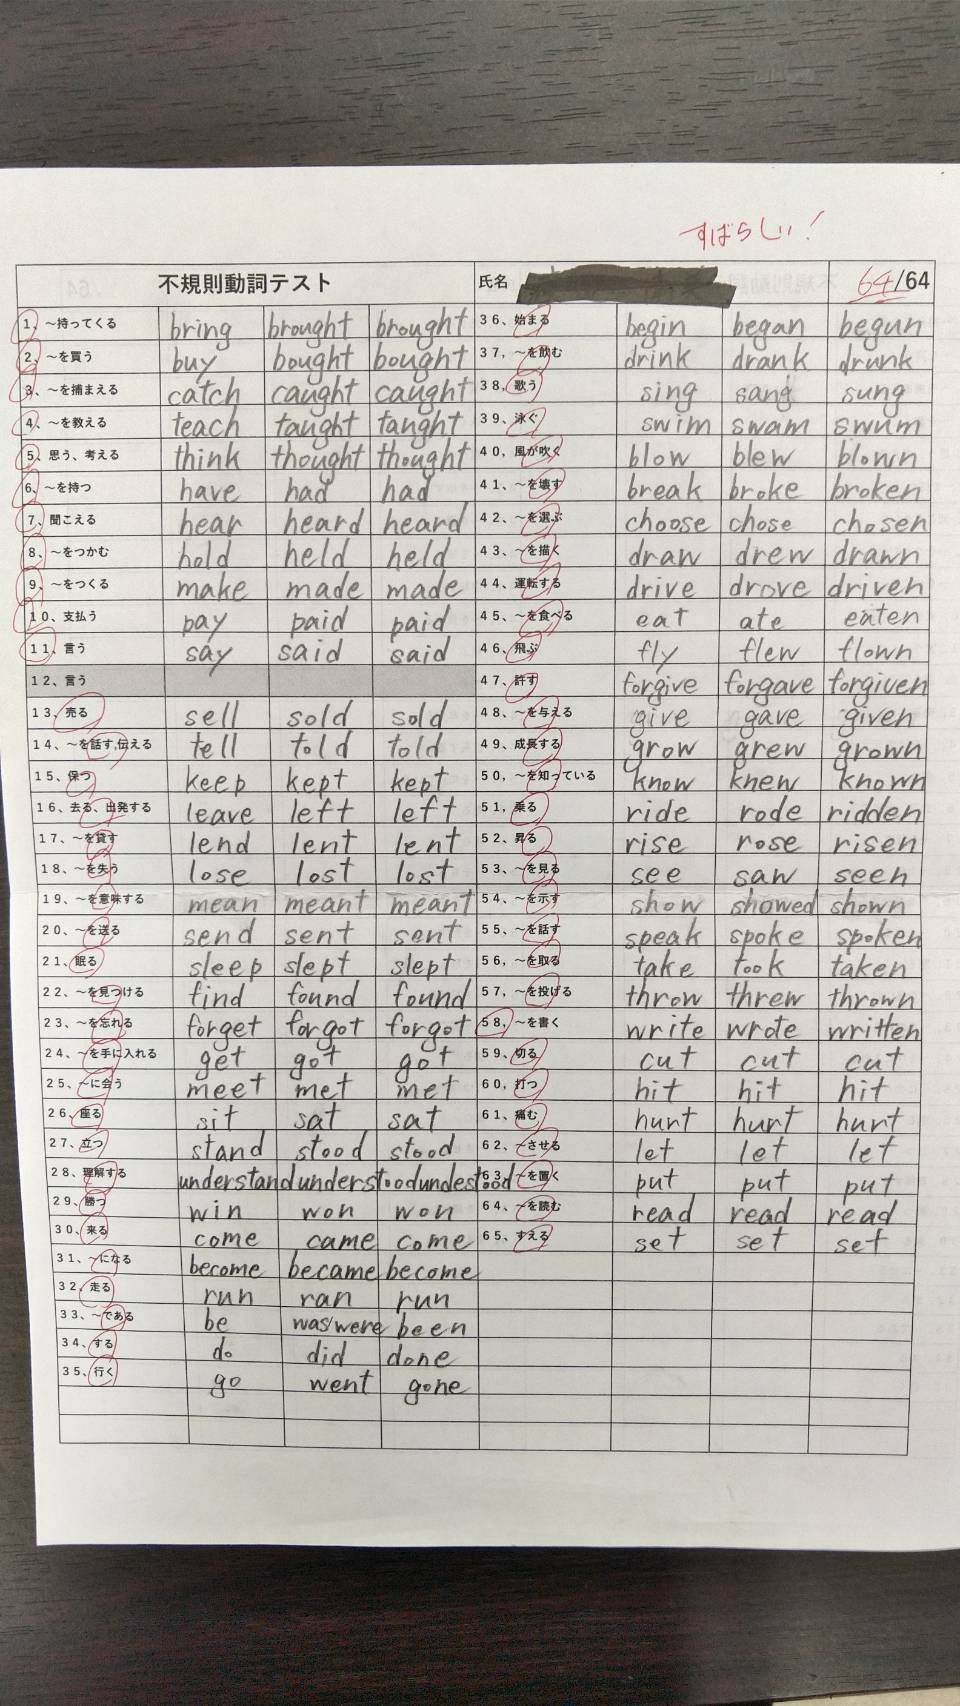 すばらしい!
不規則動詞テスト 氏名 64/64
1、～持ってくる bring brought brought
2、～を買う buy bought bought
3、～を捕まえる catch caught caught
4、～を教える teach taught taught
5、思う、考える think thought thought
6、～を持つ have had had
7、聞こえる hear heard heard
8、～をつかむ hold held held
9、～をつくる make made made
10、支払う pay paid paid
11、言う say said said
12、言う
13、売る sell sold sold
14、～を話す,伝える tell told told
15、保つ keep kept kept
16、去る、出発する leave left left
17、～を貸す lend lent lent
18、～を失う lose lost lost
19、～を意味する mean meant meant
20、～を送る send sent sent
21、眠る sleep slept slept
22、～を見つける find found found
23、～を忘れる forget forgot forgot
24、～を手に入れる get got got
25、～に会う meet met met
26、座る sit sat sat
27、立つ stand stood stood
28、理解する understand understood undestood
29、勝つ win won won
30、来る come came come
31、～になる become became become
32、走る run ran run
33、～である be was/were been
34、する do did done
35、行く go went gone
36、始まる begin began begun
37，～を飲む drink drank drunk
38，歌う sing sang sung
39、泳ぐ swim swam swum
40，風が吹く blow blew blown
41、～を壊す break broke broken
42、～を選ぶ choose chose chosen
43、～を描く draw drew drawn
44、運転する drive drove driven
45、～を食べる eat ate eaten
46、飛ぶ fly flew flown
47、許す forgive forgave forgiven
48、～を与える give gave given
49、成長する grow grew grown
50，～を知っている know knew known
51，乗る ride rode ridden
52、昇る rise rose risen
53、～を見る see saw seen
54、～を示す show showed shown
55、～を話す speak spoke spoken
56，～を取る take took taken
57，～を投げる throw threw thrown
58，～を書く write wrote written
59、切る cut cut cut
60，打つ hit hit hit
61、痛む hurt hurt hurt
62、～させる let let let
63、～を置く put put put
64、～を読む read read read
65、すえる set set set